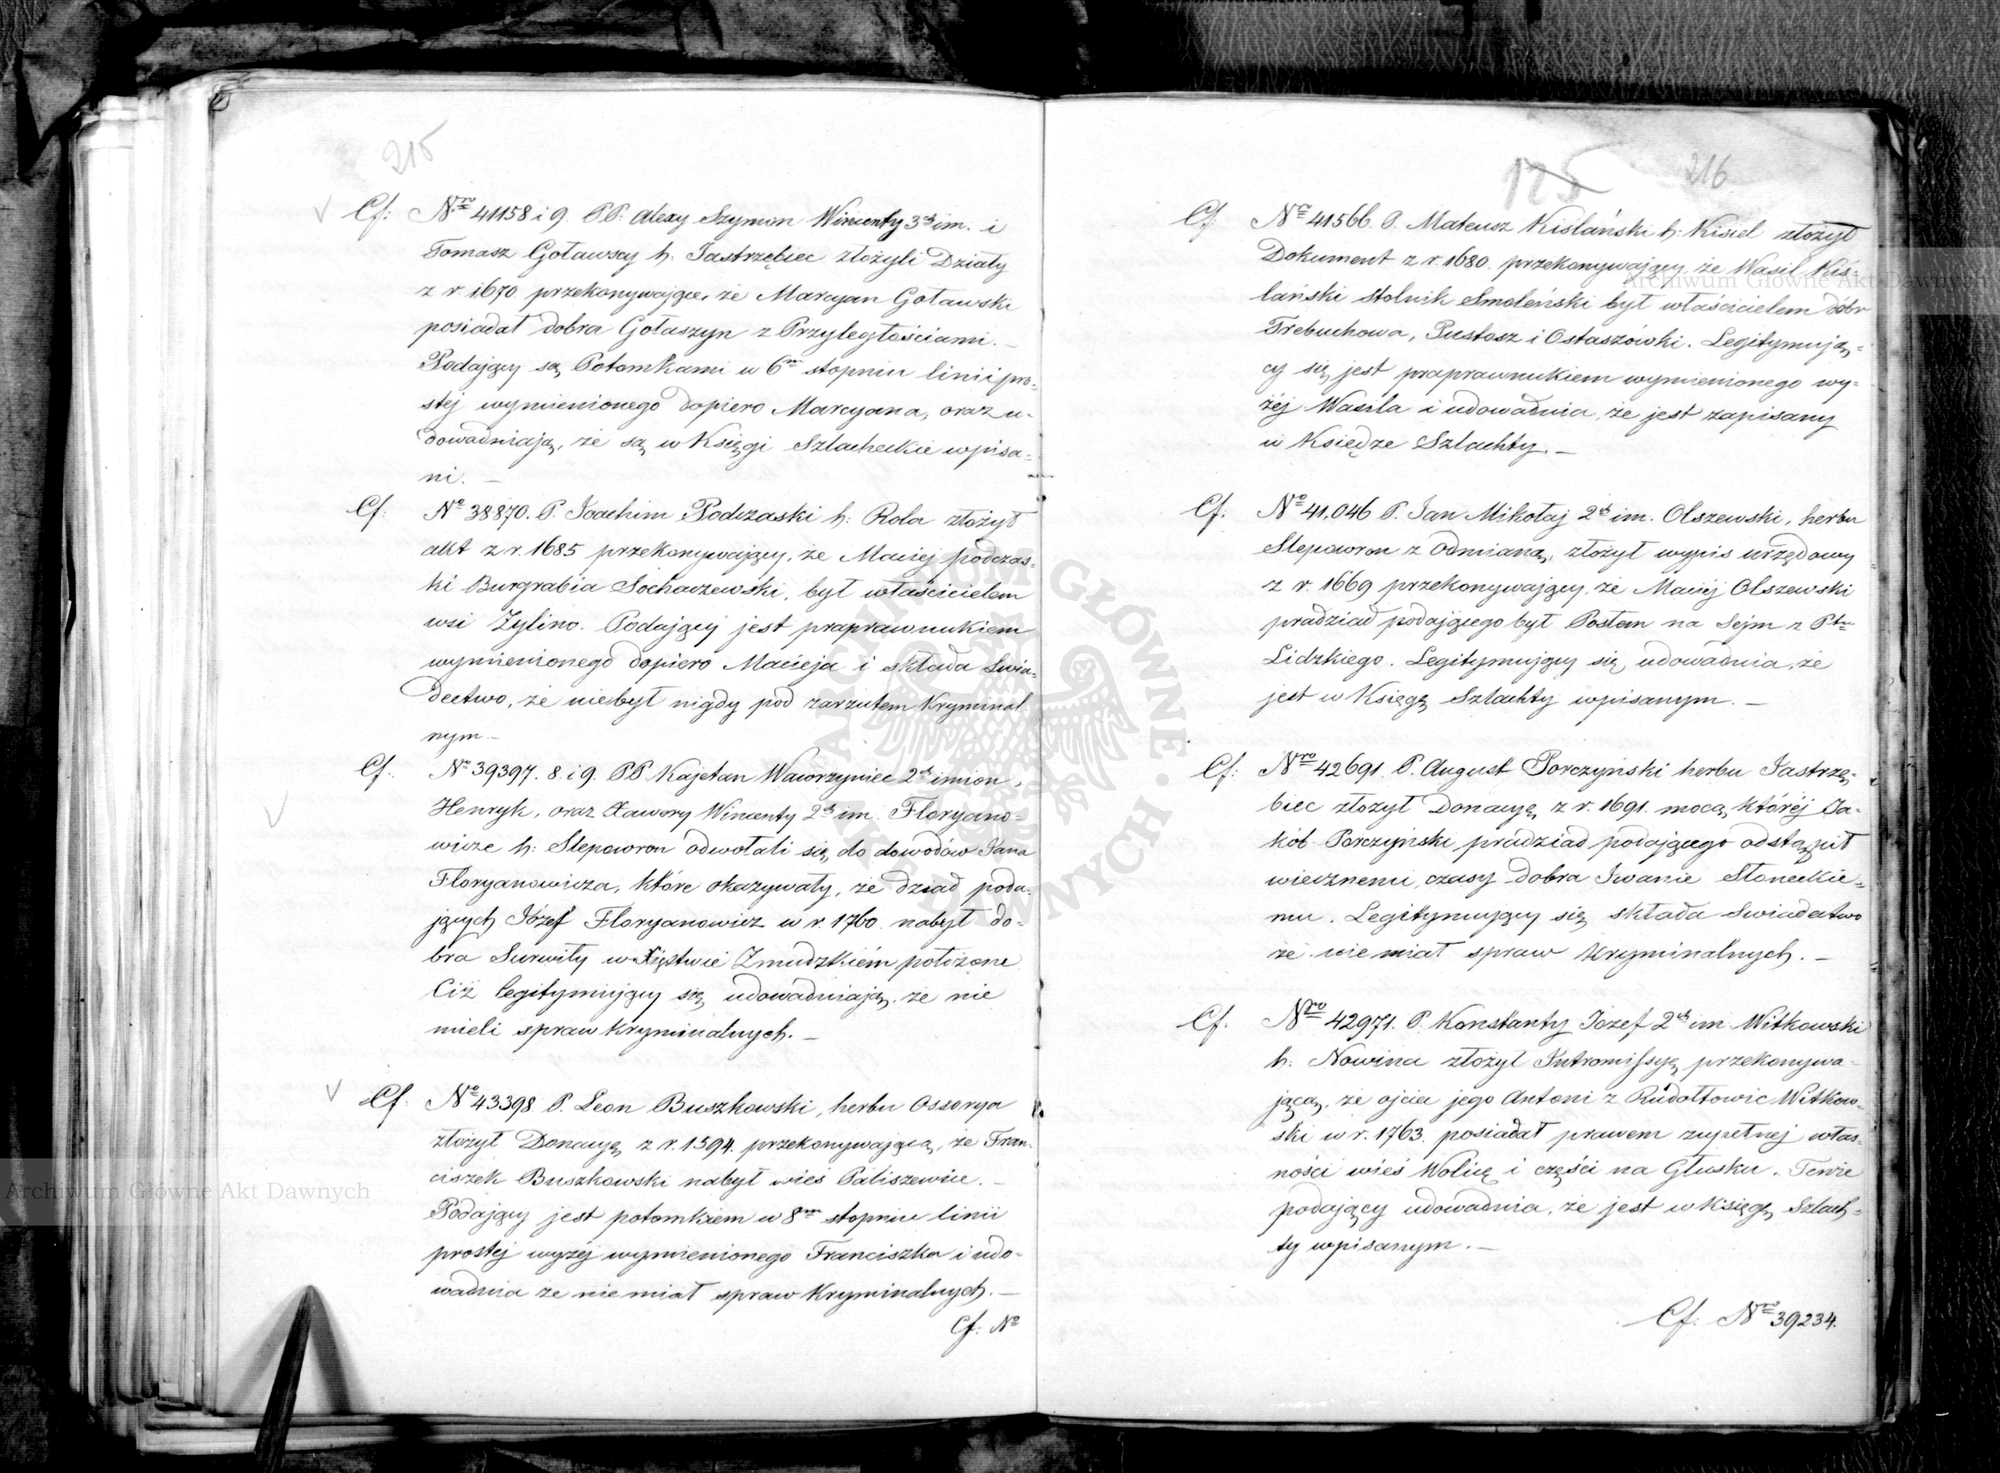 215
Cf: Nro 41158 i 9. PP. Alexy Szymon Wincenty 3ch im. i
Tomasz Goławscy h. Jastrzębiec złożyli Działy
z r. 1670 przekonywające, że Marcyan Goławski
posiadał dobra Gołaszyn z Przyległościami. —
Podający są Potomkami w 6m stopniu linii pro-
stej wymienionego dopiero Marcyana, oraz u-
dowadniają, że są w Księgi Szlacheckie wpisa-
ni. —
Cf: No 38870. P. Joachim Podczaski h: Rola złożył
akt z r. 1685 przekonywający, że Maciej podczas-
ki Burgrabia Sochaczewski, był właścicielem
wsi Żylino. Podający jest praprawnukiem
wymienionego dopiero Macieja i składa Swia-
dectwo, że nie był nigdy pod zarzutem Kryminal
nym. —
Cf: No 39397. 8. i 9. PP Kajetan Wawrzyniec 2ch imion,
Henryk, oraz Xawery Wincenty 2ch im. Floryano-
wicze h: Slepowron odwołali się do dowodów Jana
Floryanowicza, które okazywały, że dziad poda-
jących Józef Floryanowicz w r. 1760. nabył do-
bra Surwiły w Xięstwie Zmudzkiém położone
Ciż legitymujący się udowadniają, że nie
mieli spraw kryminalnych. —
Cf: No 43398 P. Leon Buszkowski, herbu Ossorya
złożył Donacyę z r. 1594. przekonywającą, że Fran-
ciszek Buszkowski nabył wieś Paliszewice. —
Podający jest potomkiem w 8m stopniu linii
prostej wyżéj wymienionego Franciszka i udo-
wadnia że nie miał spraw Kryminalnych. —
Cf: No
125 216
Cf: Nro 41566 P. Mateusz Kiślański h: Kisiel złożył
Dokument z r. 1680. przekonywający, że Wasil Kiś-
lański Stolnik Smoleński był właścicielem dóbr
Trebuchowa, Pustosz i Ostaszówki. Legitymują-
cy się jest praprawnukiem wymienionego wy-
żéj Wasila i udowadnia, że jest zapisany
w Księdze Szlachty. —
Cf: No 41,046 P. Jan Mikołaj 2ch im. Olszewski, herbu
Slepowron z odmianą, złożył wypis urzędowy
z r. 1669 przekonywający, że Maciéj Olszewski
pradziad podającego był Posłem na Sejm z Ptu
Lidzkiego. Legitymujący się udowadnia, że
jest w Księgę Szlachty wpisanym. —
Cf: Nro 42691. P. August Porczyński herbu Jastrzę-
biec złożył Donacyę z r. 1691. mocą któréj Ja-
kób Porczyński pradziad podającego odstąpił
wiecznemi czasy dobra Iwanie Słoneckie-
mu. Legitymujący się składa Swiadectwo
że nie miał spraw Kryminalnych. —
Cf. Nro 42971. P. Konstanty Józef 2ch im Witkowski
h: Nowina złożył Intromissyę przekonywa-
jącą, że ojciec jego Antoni z Rudołtowic Witkow-
ski w r. 1763. posiadał prawem zupełnej włas-
ności wieś Wolicę i części na Głusku. Tenże
podający udowadnia, że jest w Księgę Szlach-
ty wpisanym. —
Cf: Nro 39234.
ARCHIWUM GŁÓWNE AKT DAWNYCH
Archiwum Główne Akt Dawnych
Archiwum Główne Akt Dawnych